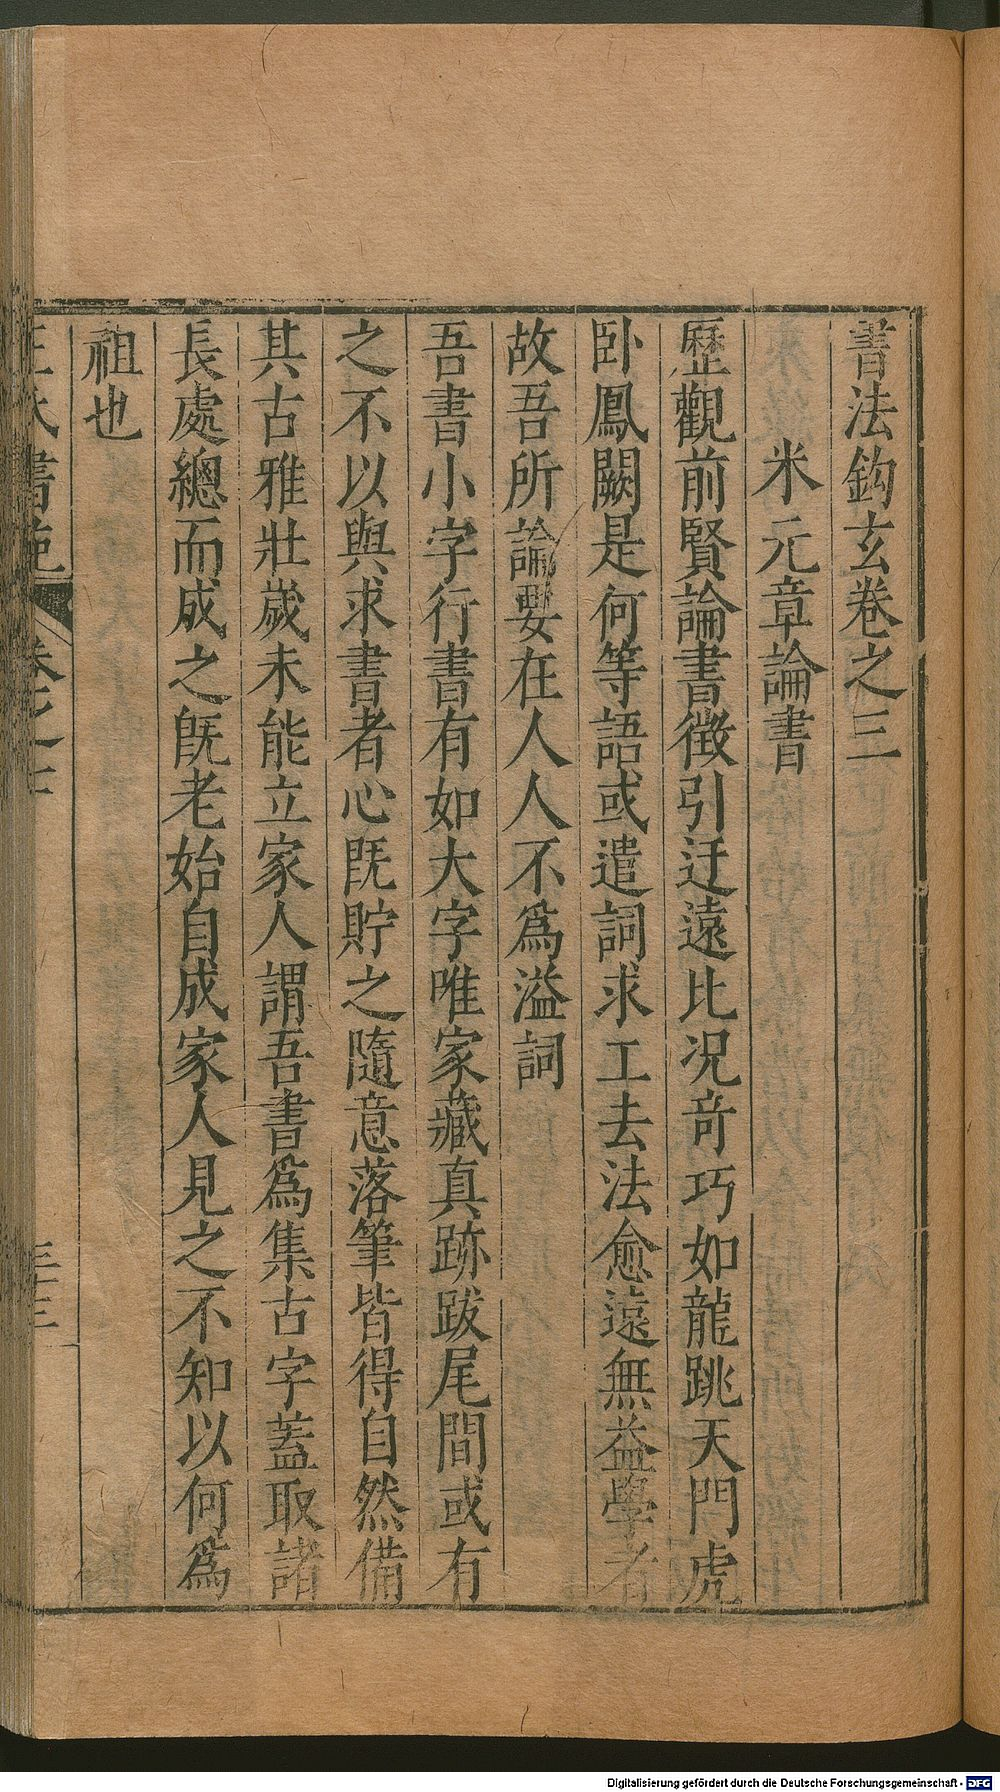 書法鈎玄卷之三
米元章論書
歷觀前賢論書徵引迂遠比况竒巧如龍跳天門虎
卧鳳闕是何等語或遣詞求工去法愈遠無益學者
故吾所論要在人人不爲溢詞
吾書小字行書有如大字唯家藏真跡跋尾間或有
之不以與求書者心既貯之隨意落筆皆得自然備
其古雅壯歲未能立家人謂吾書爲集古字蓋取諸
長處總而成之既老始自成家人見之不知以何爲
祖也
王氏書苑 卷之十 三十三
Digitalisierung gefördert durch die Deutsche Forschungsgemeinschaft - DFG